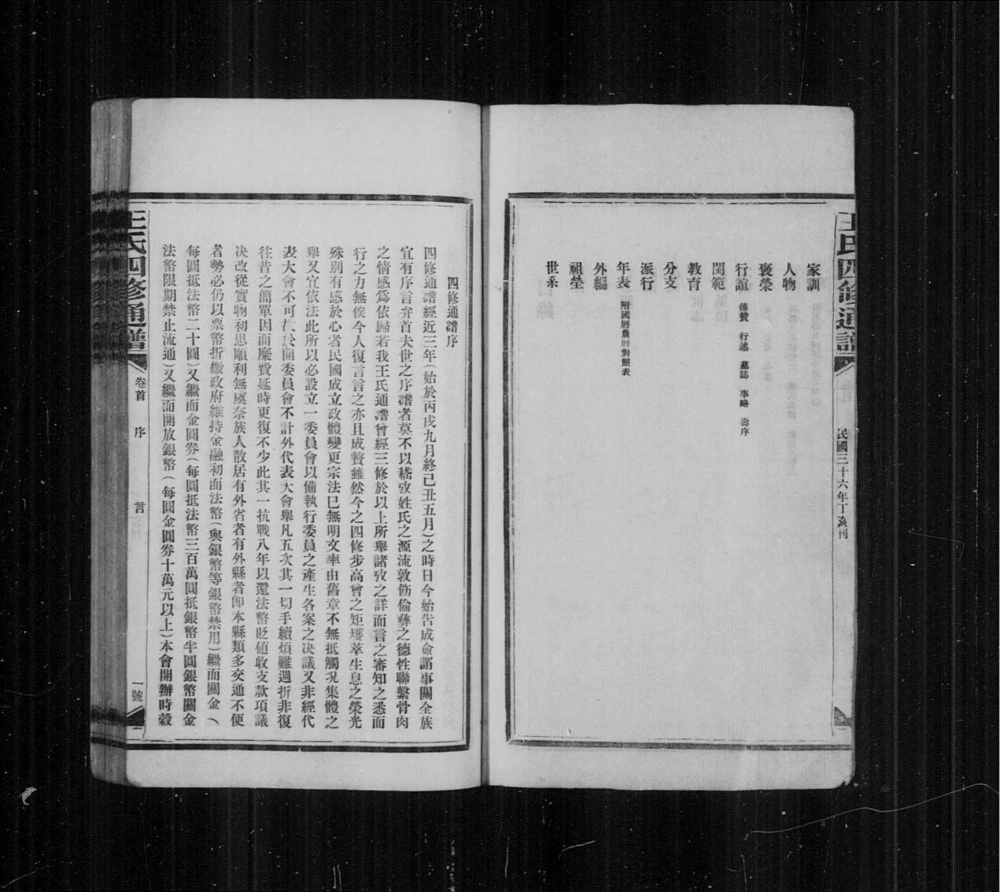 王氏四修通譜
民國三十六年丁亥刊
家訓
人物
褒榮
行誼 傳贊 行述 墓誌 事略 壽序
閨範
教育
分支
派行
年表 附國曆農曆對照表
外編
祖塋
世系
四修通譜序
四修通譜經近三年(始於丙戌九月終己丑五月)之時日今始告成僉謂事關全族
宜有序言弁首夫世之序譜者莫不以嵇攷姓氏之源流敦飭倫彝之德性聯繫骨肉
之情感爲依歸若我王氏通譜曾經三修於以上所舉諸攷之詳而言之審知之悉而
行之力無俟今人復言言之亦且成贅雖然今之四修步高曾之矩矱萃生息之榮光
殊別有感於心者民國成立政體變更宗法已無明文率由舊章不無抵觸况集體之
舉又宜依法此所以必設立一委員會以備執行委員之產生各案之决議又非經代
表大會不可 於開委員會不計外代表大會舉凡五次其一切手續煩難過折非復
往昔之簡單因而糜費延時更復不少此其一抗戰八年以還法幣貶値收支款項議
决改從實物初思順利無虞奈族人散居有外省者有外縣者卽本縣類多交通不便
者勢必仍以票幣折繳政府維持金融初而法幣(與銀幣等銀幣禁用)繼而關金(
每圓抵法幣二十圓)又繼而金圓券(每圓抵法幣三百萬圓抵銀幣半圓銀幣關金
法幣限期禁止流通)又繼而開放銀幣(每圓金圓券十萬元以上)本會開辦時穀
王氏四修通譜
卷首
序
言
一號